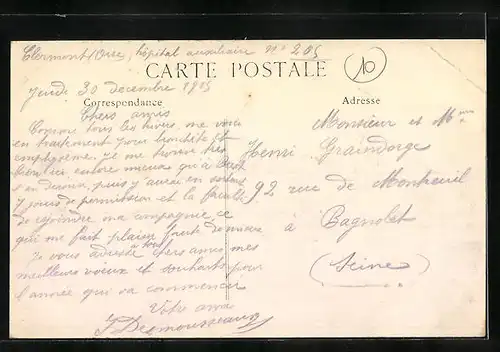 Clermont (Oise, hôpital auxiliaire n° 205
CARTE POSTALE
10
Jeudi 30 décembre 1915
Correspondance
Adresse
Chers amis
Comme tous les hivers, me voici
en traitement pour bronchite et
emphysème. Je me trouve très
bien ici, encore mieux qu'à
puis j'aurai en sortant
7 jours de permission et la
de rejoindre ma compagnie, ce
qui me fait plaisir faute de mieux
Je vous adresse à tous chers amis mes
meilleurs vœux et souhaits pour
l'année qui va commencer
Votre ami
J. Desmousseaux
Monsieur et Mme
Henri Graindorge
92 rue de Montreuil
à Bagnolet
(Seine)